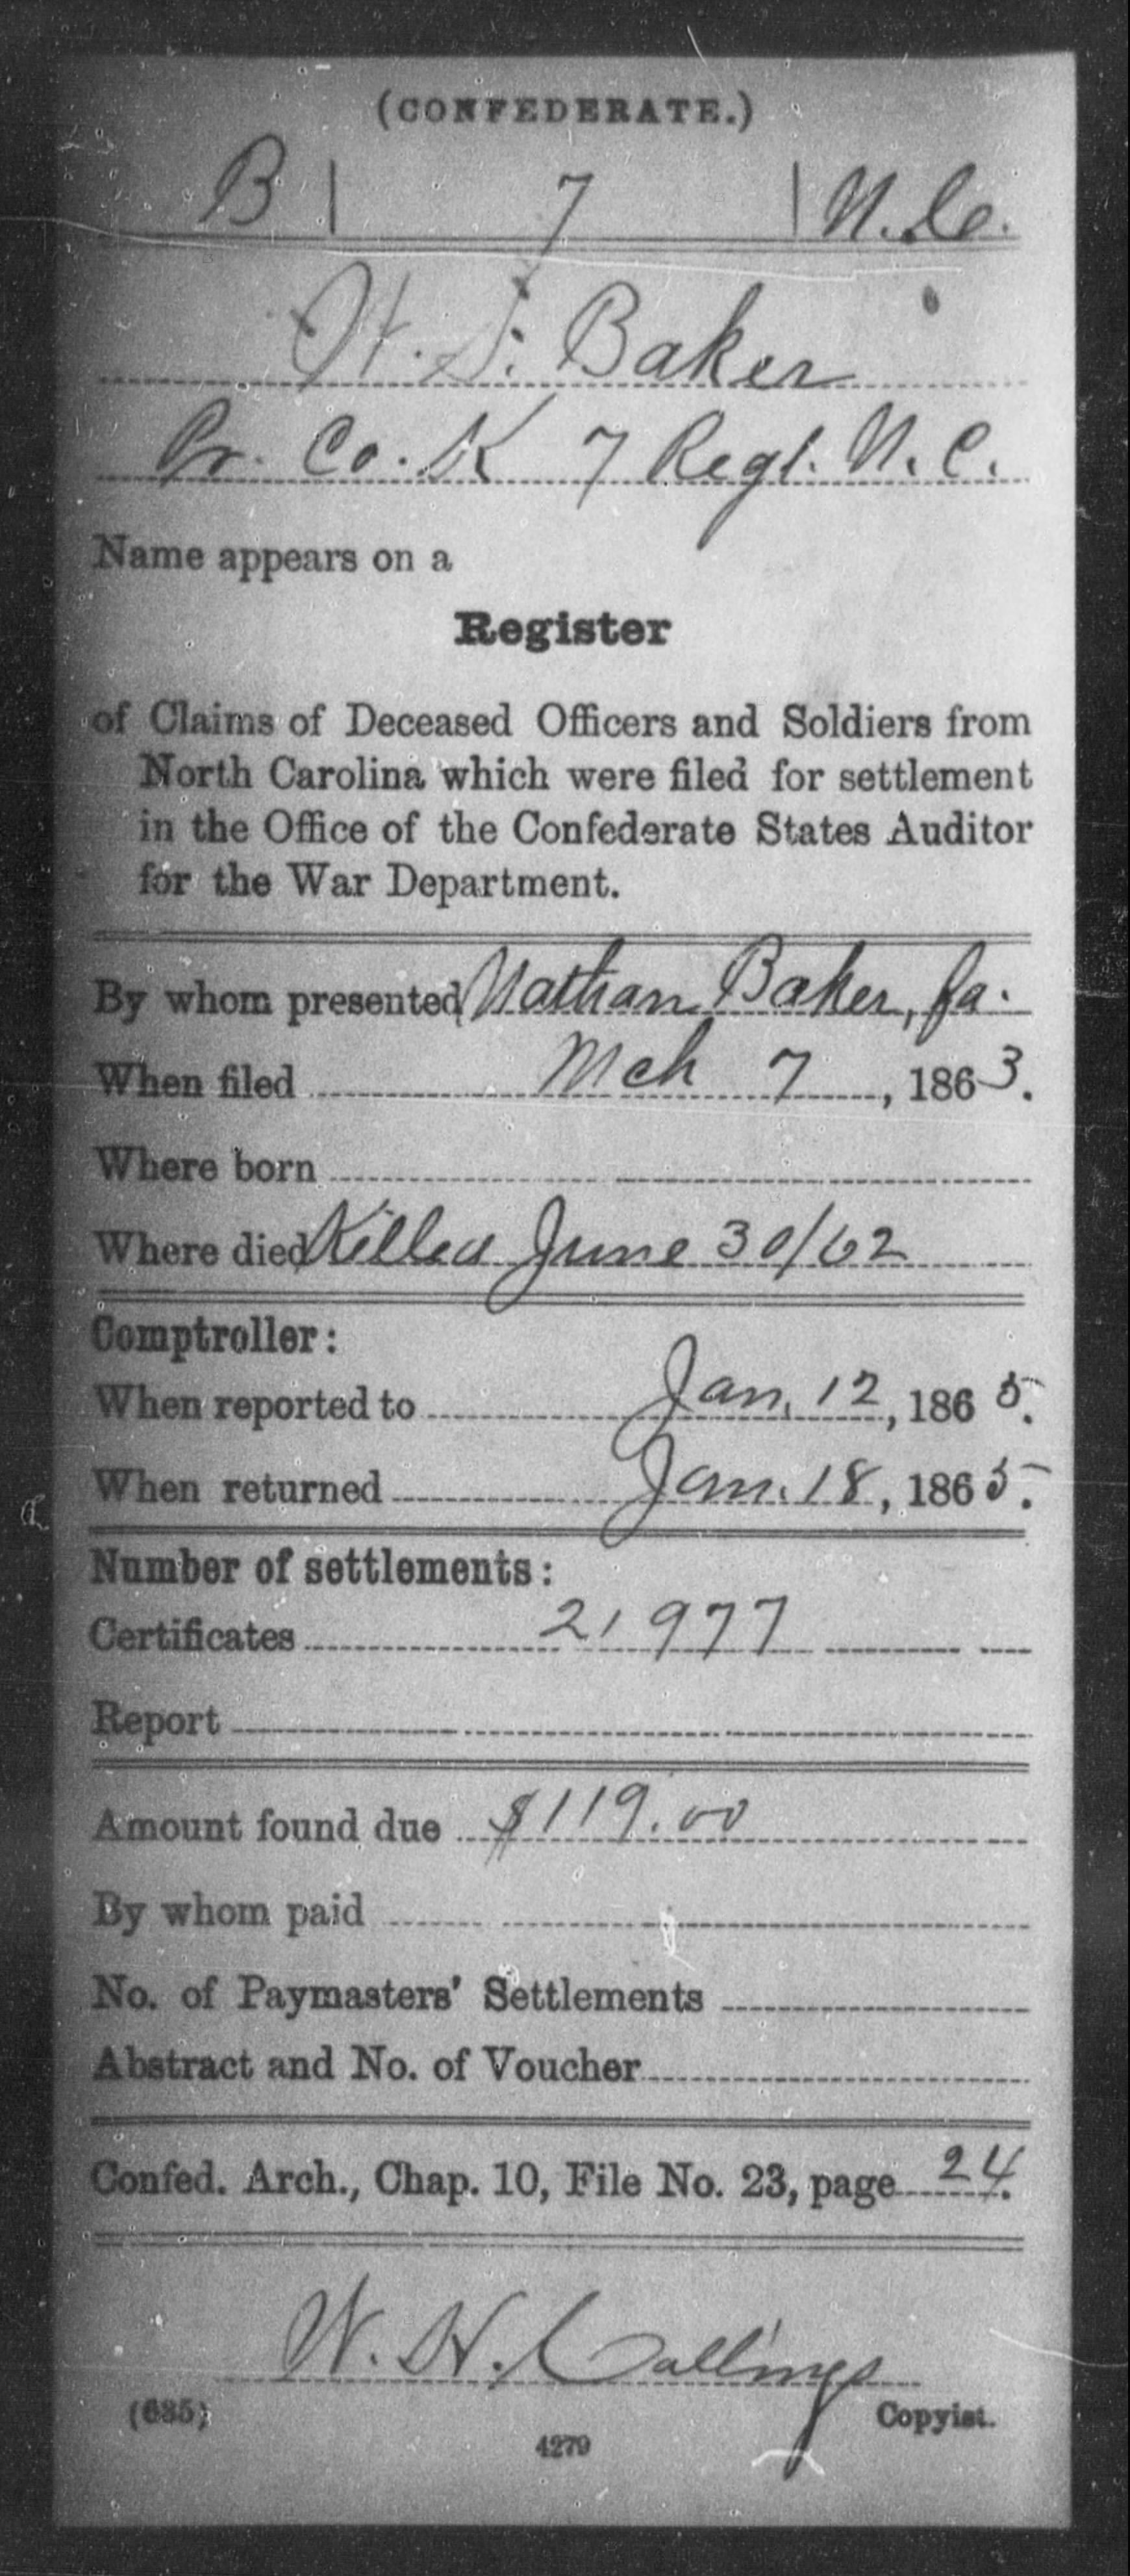 (CONFEDERATE.)
B | 7 | N. C.
H. S. Baker
Pr. Co. K 7 Regt. N. C.
Name appears on a
Register
of Claims of Deceased Officers and Soldiers from
North Carolina which were filed for settlement
in the Office of the Confederate States Auditor
for the War Department.
By whom presented Nathan Baker, fa.
When filed Mch 7, 1863.
Where born
Where died Killed June 30/62
Comptroller:
When reported to Jan. 12, 1865.
When returned Jan. 18, 1865.
Number of settlements:
Certificates 21977
Report
Amount found due $119.00
By whom paid
No. of Paymasters' Settlements
Abstract and No. of Voucher
Confed. Arch., Chap. 10, File No. 23, page 24.
W. H. Collings
(635) Copyist.
4279